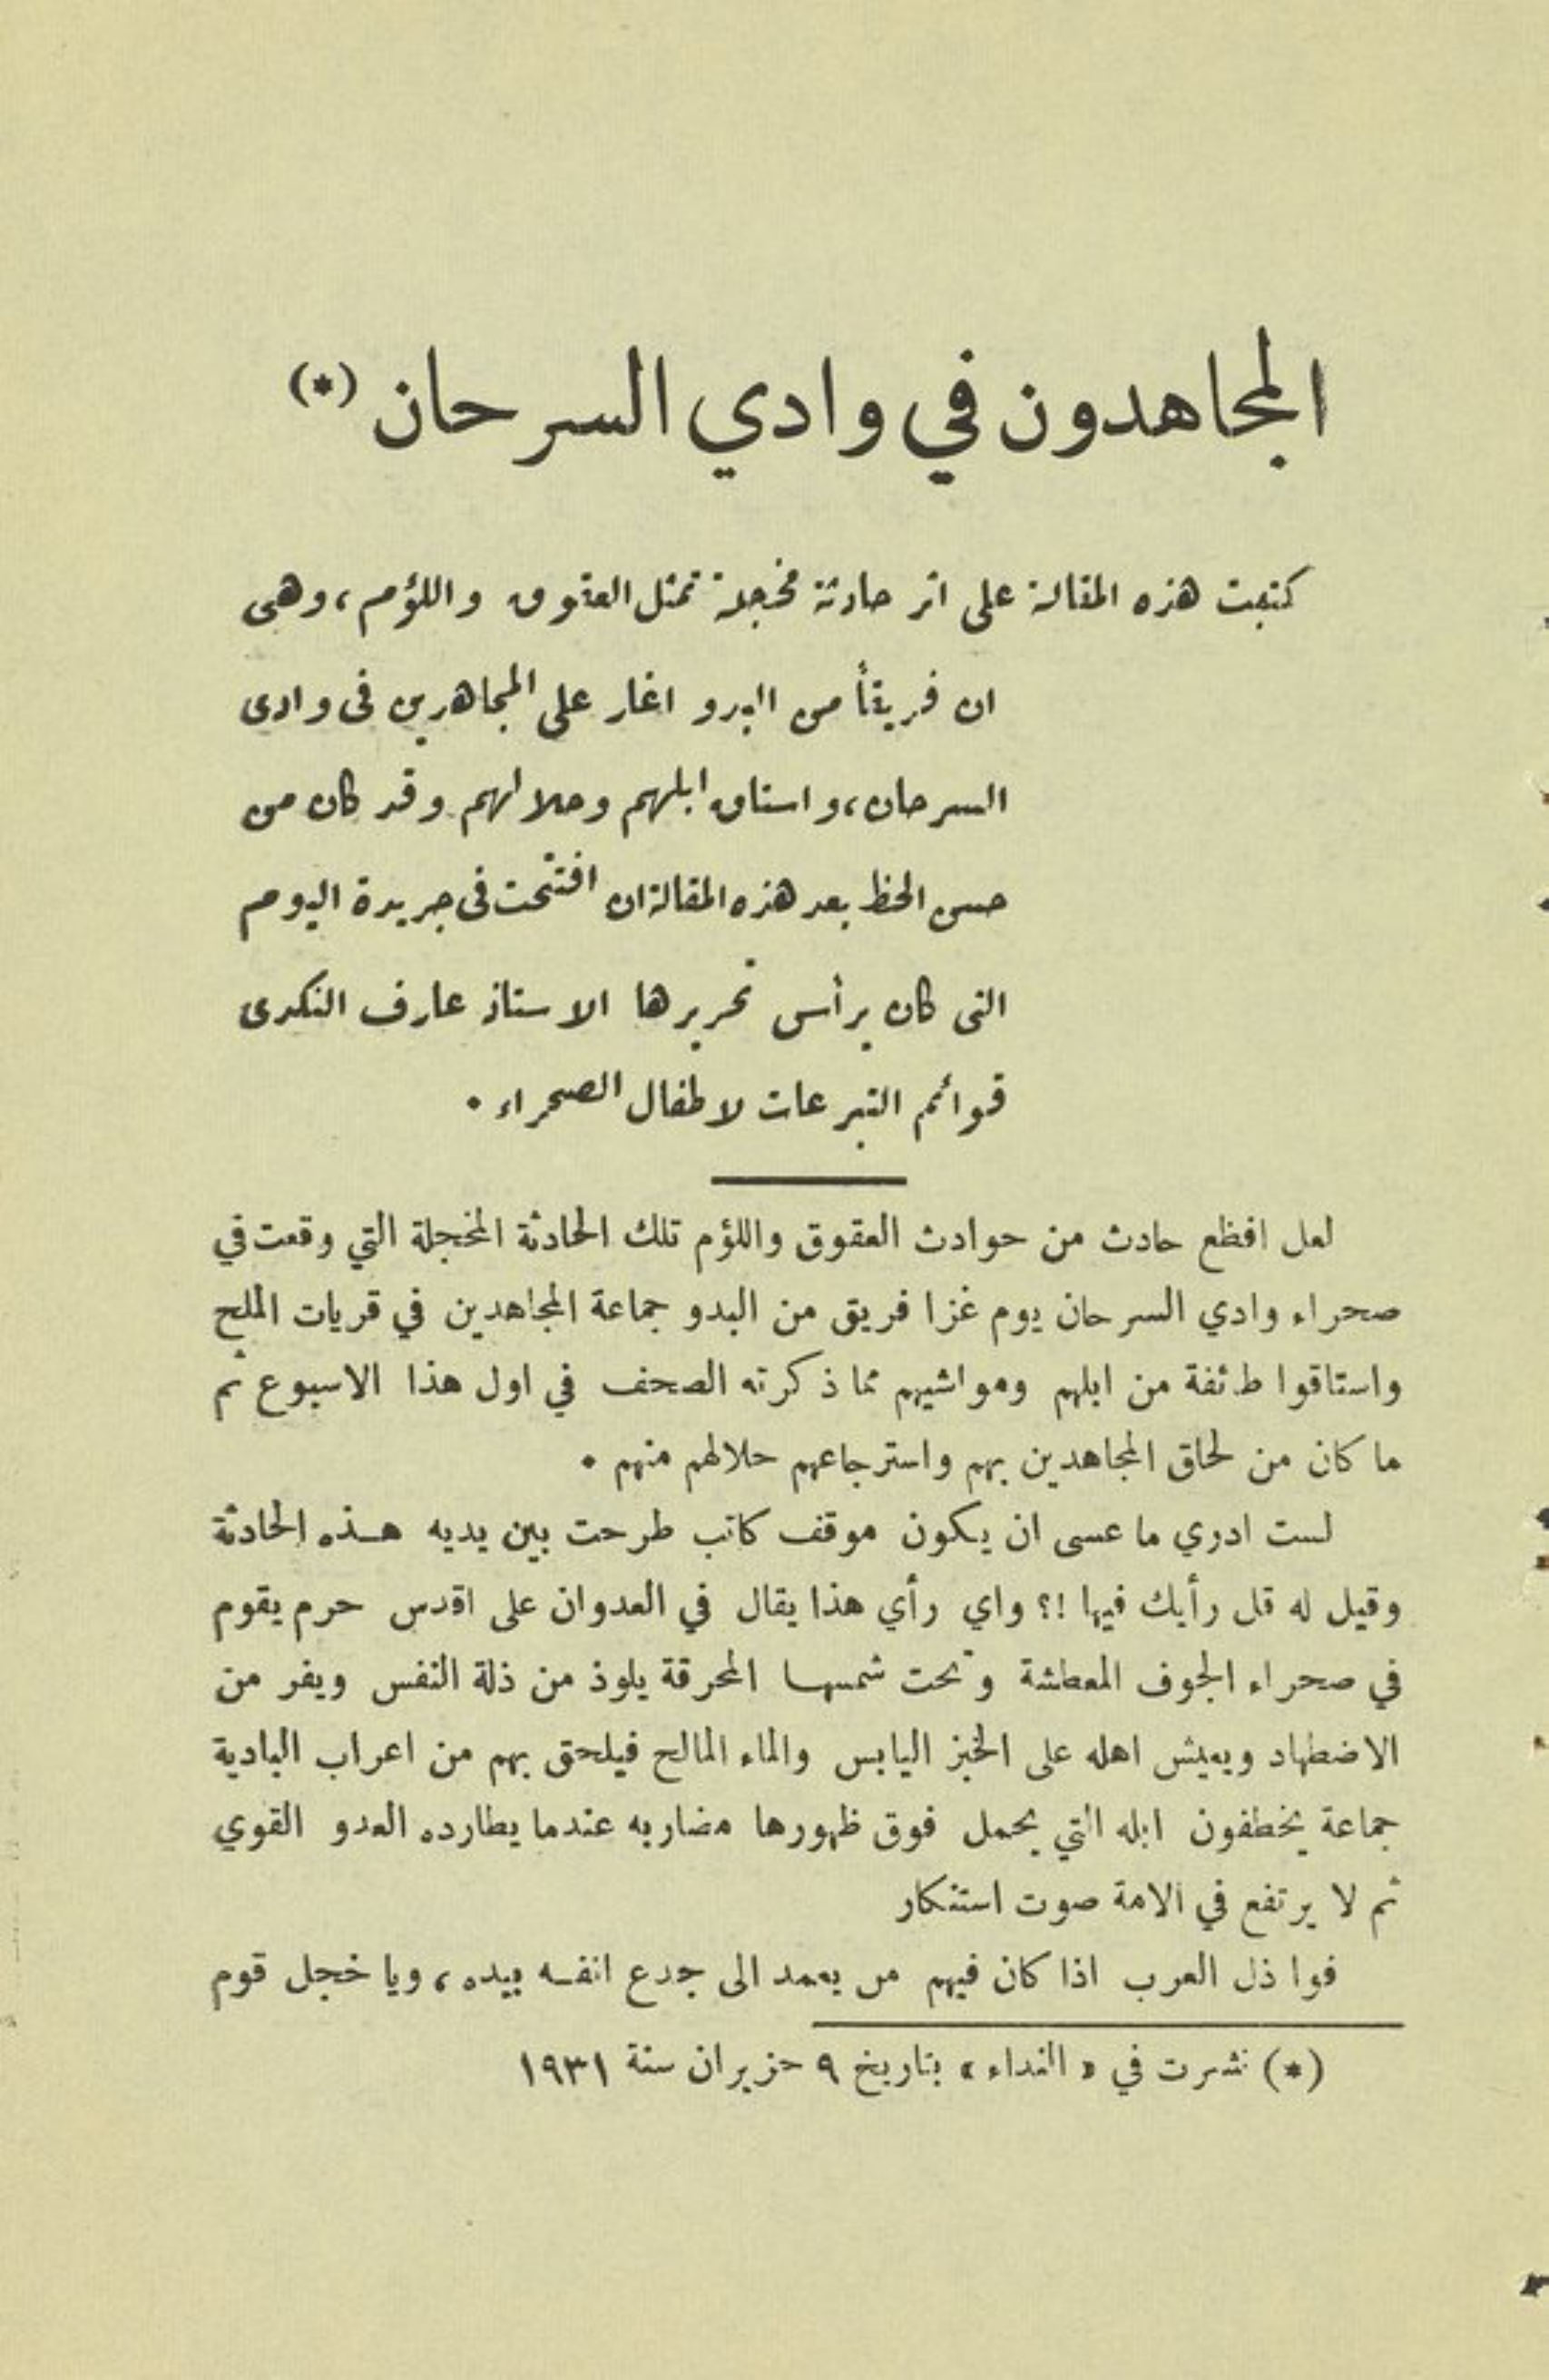 المجاهدون في وادي السرحان (*)
كتبت هذه المقالة على اثر حادثة مخجلة تمثل العقوق واللؤم، وهي
ان فريقاً من البدو اغار على المجاهدين في وادي
السرحان، واستاق ابلهم وحلالهم وقد كان من
حسن الحظ بعد هذه المقالة ان افتتحت في جريدة اليوم
التي كان يرأس تحريرها الاستاذ عارف النكدي
قوائم التبرعات لاطفال الصحراء .
لعل افظع حادث من حوادث العقوق واللؤم تلك الحادثة المخجلة التي وقعت في
صحراء وادي السرحان يوم غزا فريق من البدو جماعة المجاهدين في قريات الملح
واستاقوا طائفة من ابلهم ومواشيهم مما ذكرته الصحف في اول هذا الاسبوع ثم
ما كان من لحاق المجاهدين بهم واسترجاعهم حلالهم منهم .
لست ادري ما عسى ان يكون موقف كاتب طرحت بين يديه هذه الحادثة
وقيل له قل رأيك فيها !؟ واي رأي هذا يقال في العدوان على اقدس حرم يقوم
في صحراء الجوف المعطشة وتحت شمسها المحرقة يلوذ من ذلة النفس ويفر من
الاضطهاد ويعيش اهله على الخبز اليابس والماء المالح فيلحق بهم من اعراب البادية
جماعة يخطفون ابله التي يحمل فوق ظهورها مضاربه عندما يطارده العدو القوي
ثم لا يرتفع في الامة صوت استنكار
فوا ذل العرب اذا كان فيهم من يعمد الى جدع انفسه بيده، ويا خجل قوم
(*) نشرت في « النداء » بتاريخ ٩ حزيران سنة ١٩٣١